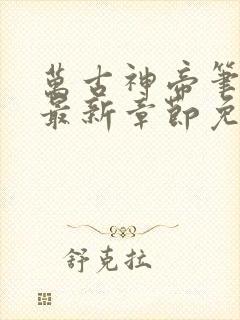 萬古神帝筆
最新章節免
舒克拉